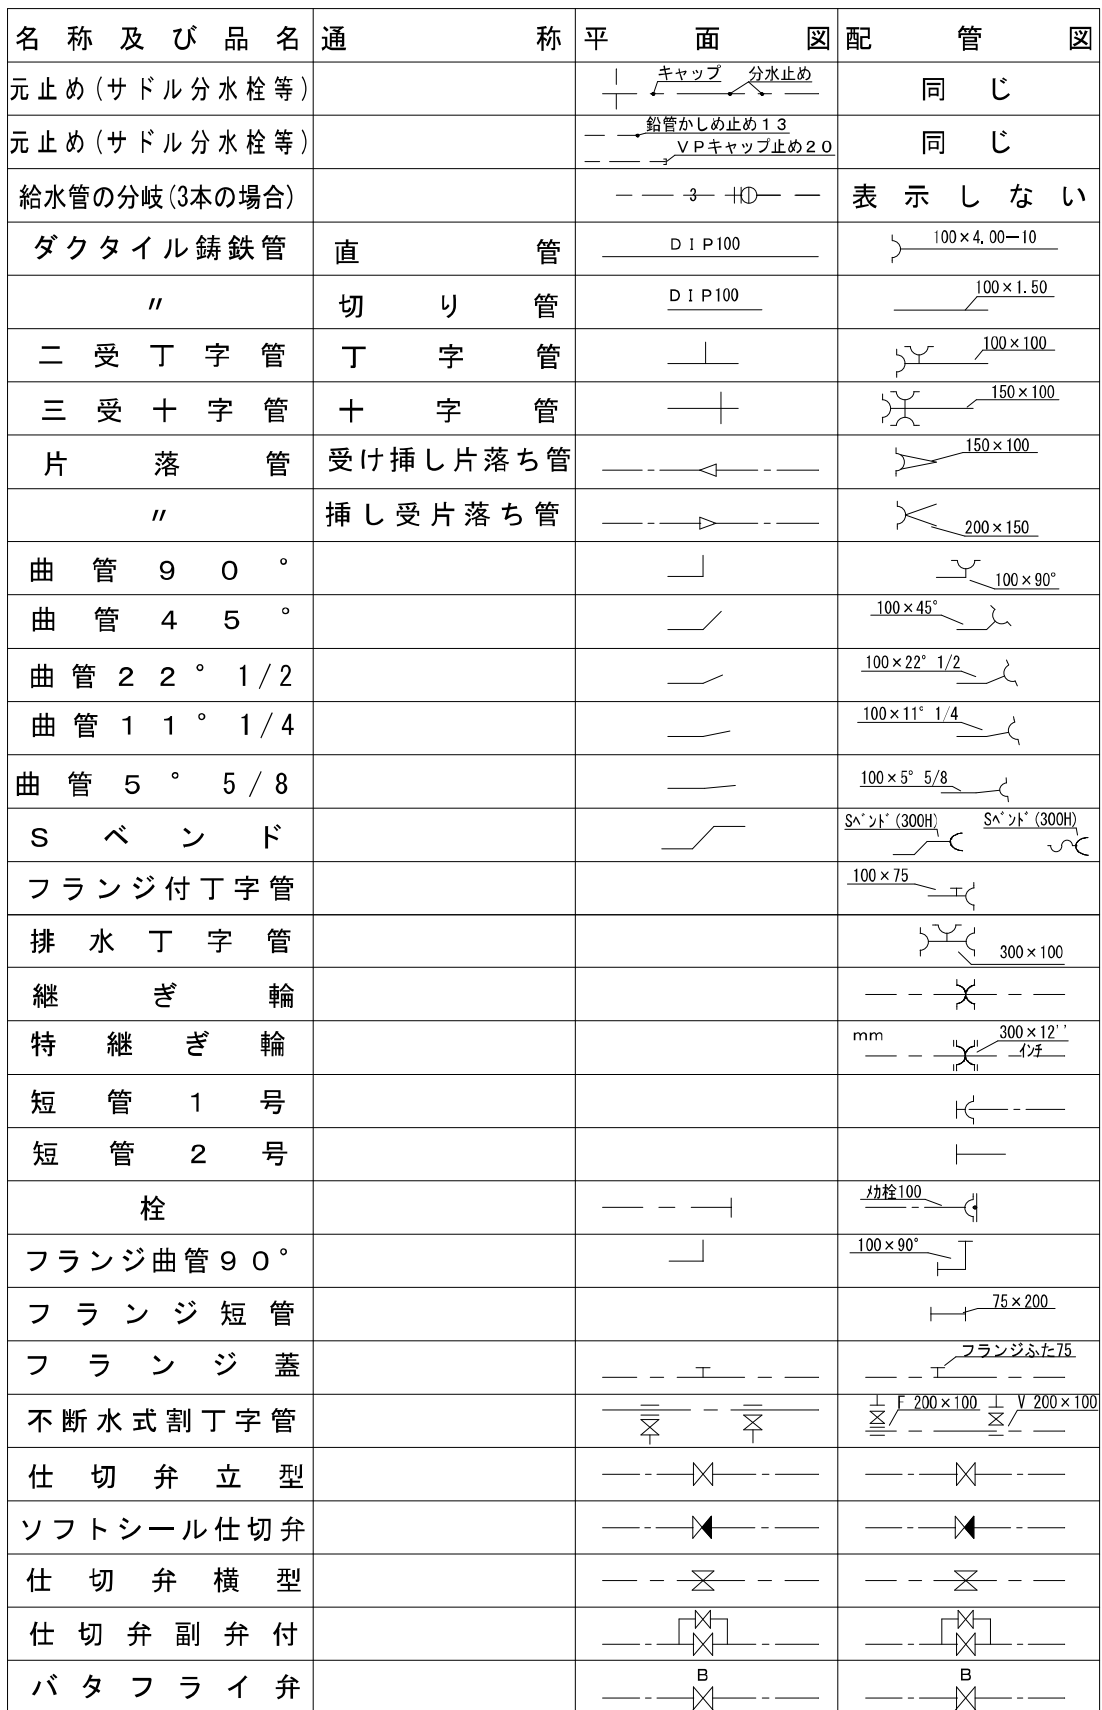 名称及び品名 通称 平面図 配管図
元止め(サドル分水栓等) キャップ 分水止め 同じ
元止め(サドル分水栓等) 鉛管かしめ止め13 同じ
VPキャップ止め20
給水管の分岐(3本の場合) 3 表示しない
ダクタイル鋳鉄管 直管 DIP100 100×4.00-10
〃 切り管 DIP100 100×1.50
二受丁字管 丁字管 100×100
三受十字管 十字管 150×100
片落管 受け挿し片落ち管 150×100
〃 挿し受片落ち管 200×150
曲管90° 100×90°
曲管45° 100×45°
曲管22°1/2 100×22°1/2
曲管11°1/4 100×11°1/4
曲管5°5/8 100×5°5/8
Sベンド Sベンド(300H) Sベンド(300H)
フランジ付丁字管 100×75
排水丁字管 300×100
継ぎ輪
特継ぎ輪 mm 300×12''
インチ
短管1号
短管2号
栓 メカ栓100
フランジ曲管90° 100×90°
フランジ短管 75×200
フランジ蓋 フランジふた75
不断水式割丁字管 F 200×100 V 200×100
仕切弁立型
ソフトシール仕切弁
仕切弁横型
仕切弁副弁付
バタフライ弁 B B